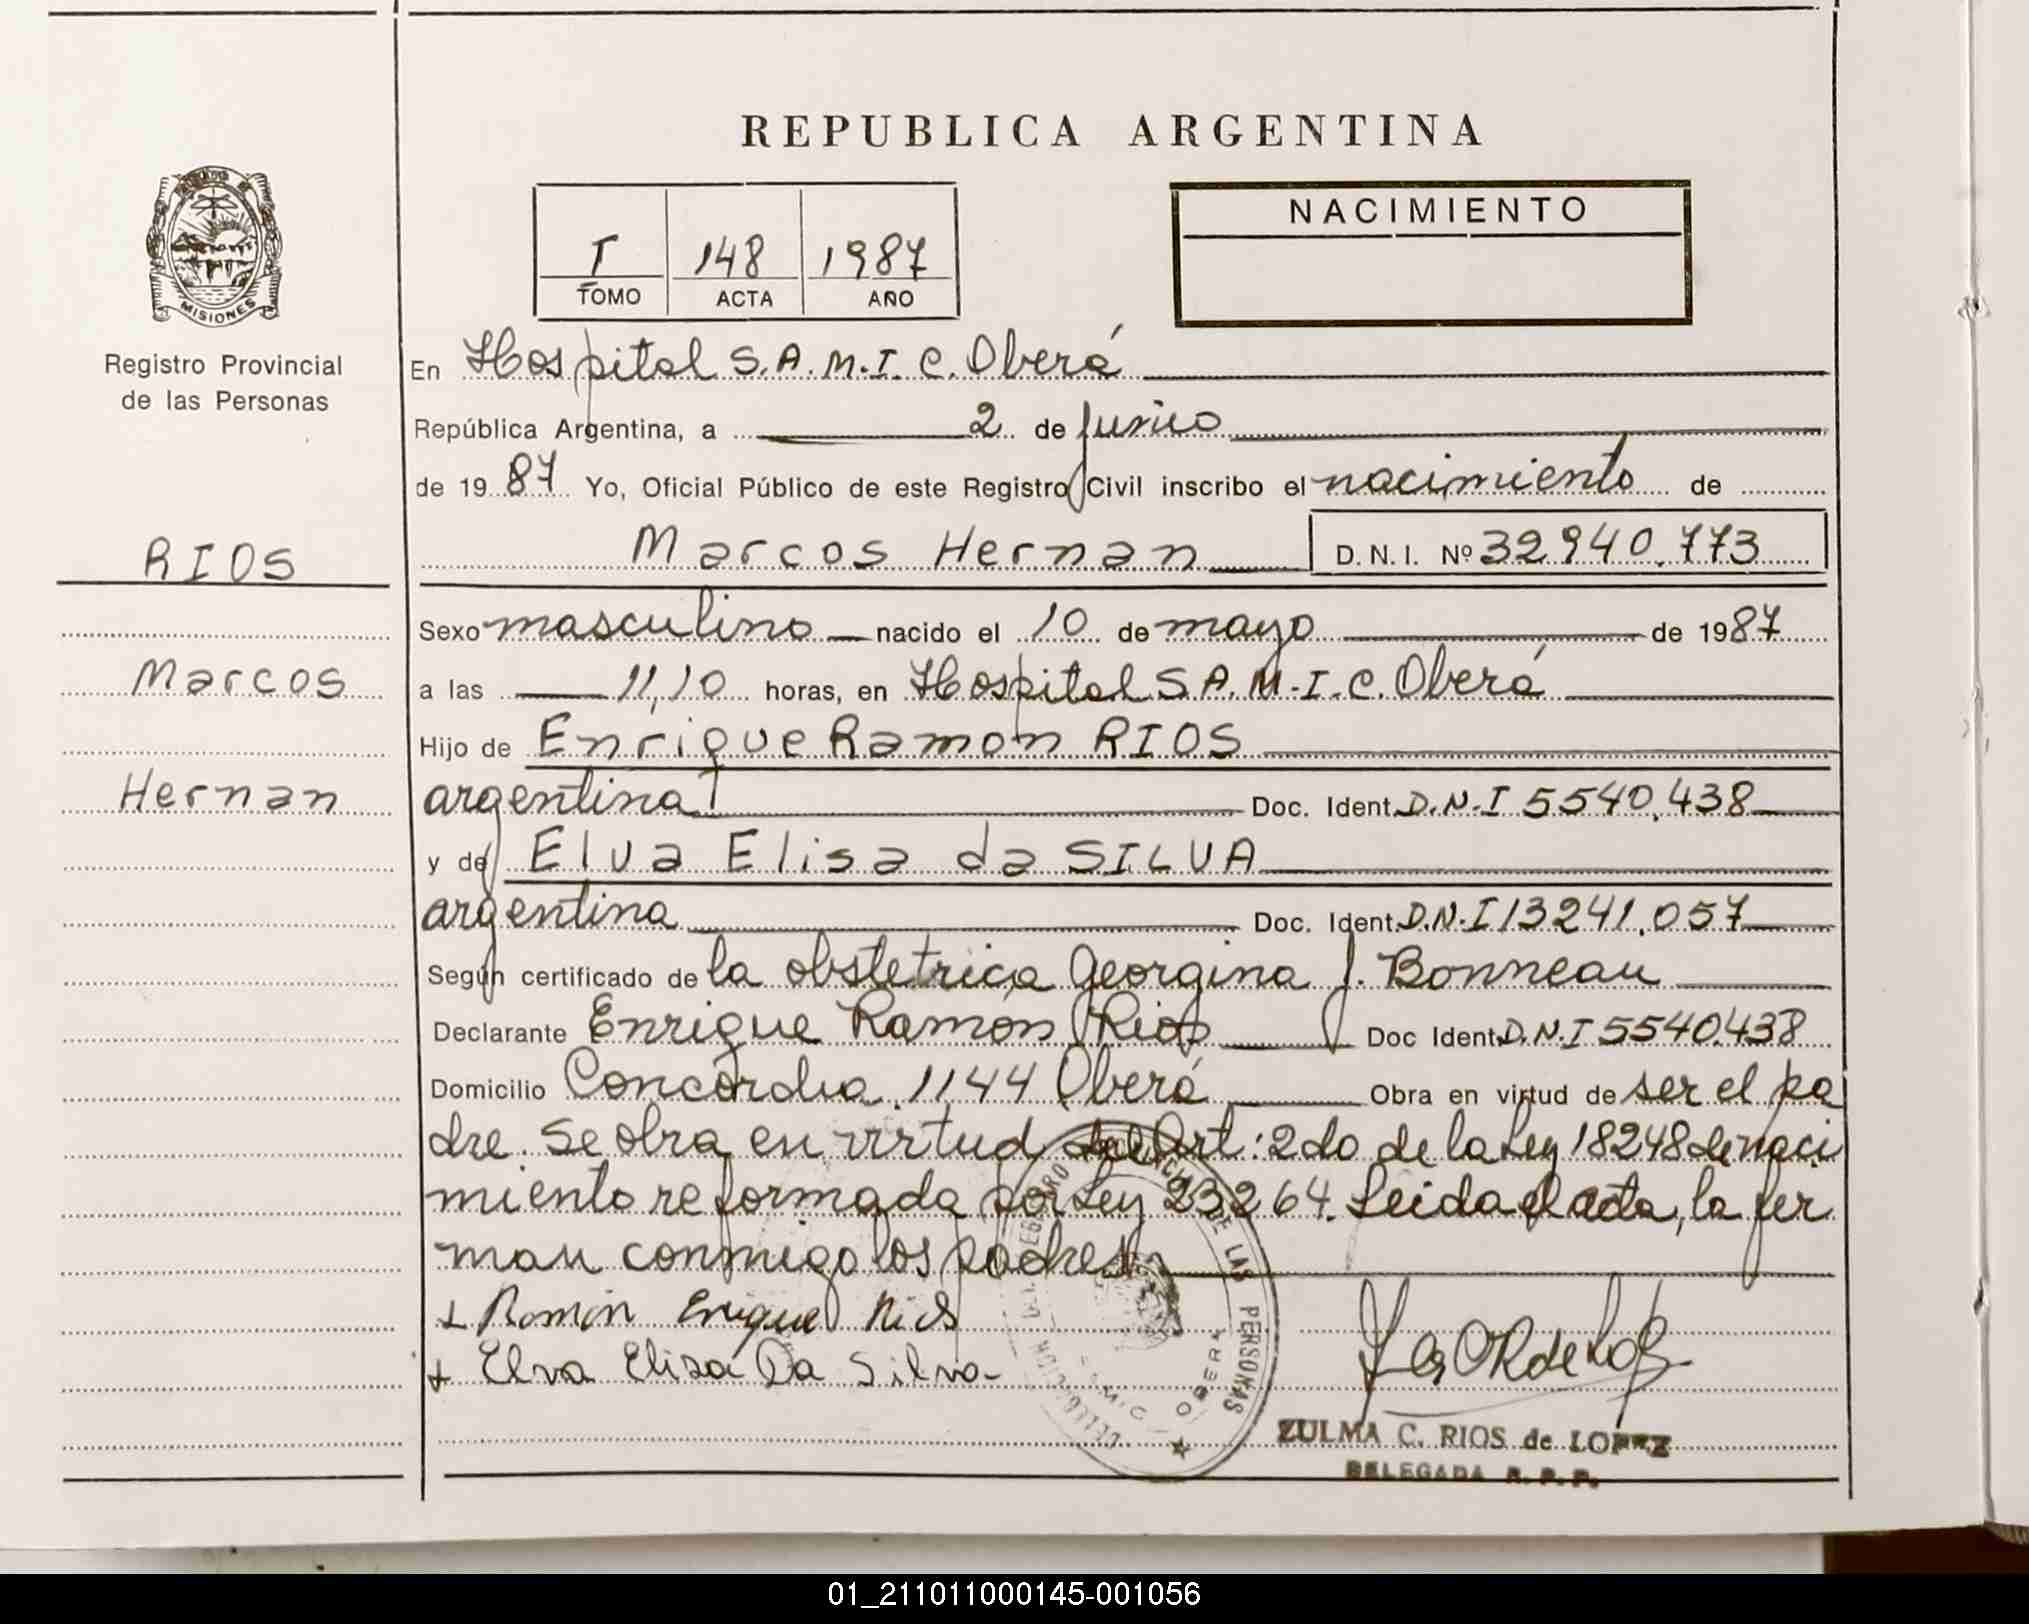 REPUBLICA ARGENTINA
MISIONES
Registro Provincial
de las Personas
RIOS
Marcos
Hernan
I 148 1987
TOMO ACTA AÑO
NACIMIENTO
En Hospital S.A.M.I.C. Oberá
República Argentina, a 2 de Junio
de 1987 Yo, Oficial Público de este Registro Civil inscribo el nacimiento de
Marcos Hernan D.N.I. Nº 32.940.773
Sexo masculino nacido el 10 de mayo de 1987
a las 11,10 horas, en Hospital S.A.M.I.C. Oberá
Hijo de Enrique Ramon RIOS
argentina Doc. Ident. D.N.I 5540.438
y de Elva Elisa da SILVA
argentina Doc. Ident. D.N.I 13241.057
Según certificado de la obstetrica Georgina J. Bonneau
Declarante Enrique Ramón Rios Doc Ident. D.N.I 5540.438
Domicilio Concordia 1144 Oberá Obra en virtud de ser el pa
dre. Se obra en virtud del Art: 2do de la Ley 18248 de naci
miento reformada por Ley 23264. Leida el acta, la fir
man conmigo los padres
+ Ramón Enrique Rios
+ Elva Elisa Da Silva-
DE LAS PERSONAS
OBERA
ZULMA C. RIOS de LOPEZ
DELEGADA R. P. P.
01_211011000145-001056